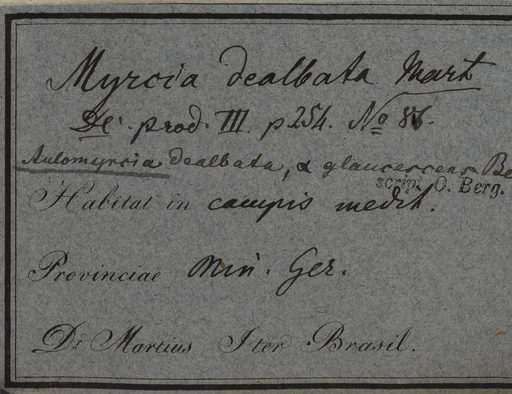 Myrcia dealbata Mart
DC. prod. III. p 254. No 86.
Aulomyrcia dealbata, α glaucescens Be
scrips. O. Berg.
Habitat in campis medit.
Provinciae Min. Ger.
Dr. Martius Iter Brasil.